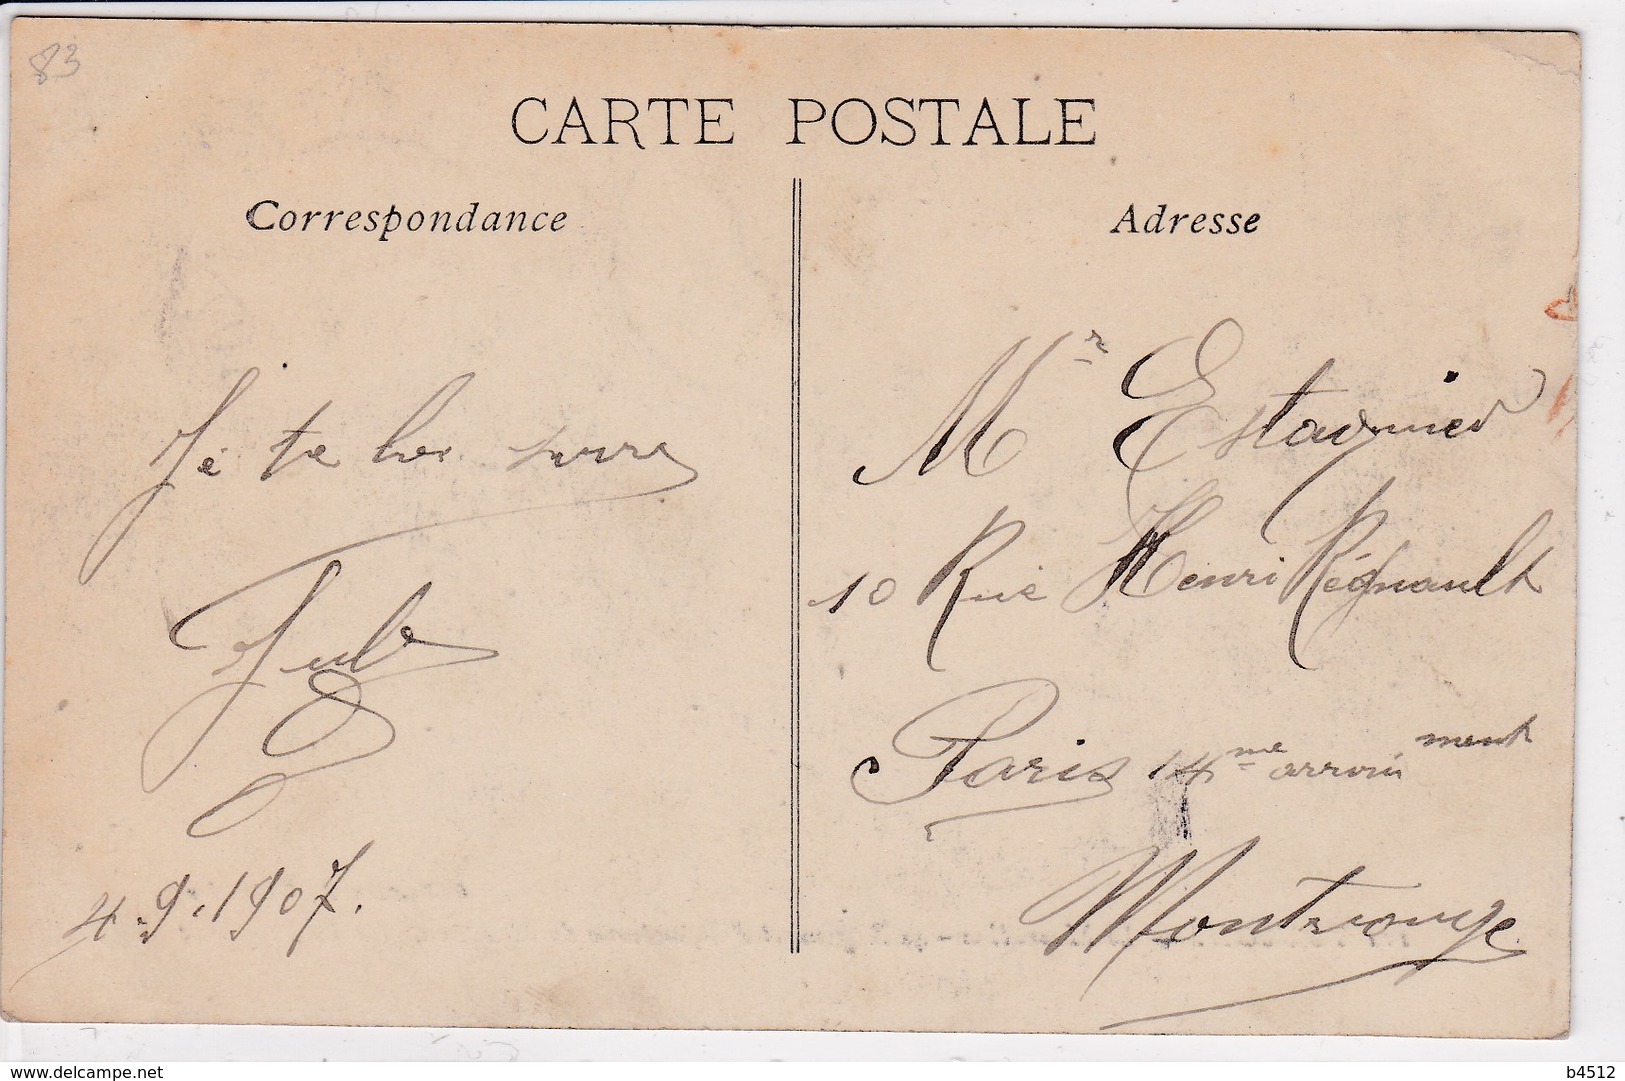 83
CARTE POSTALE
Correspondance
Je te
4.9.1907.
Adresse
Mr Estagnier
10 Rue Henri Régnault
Paris 14me arroin ment
Montrouge
www.delcampe.net
b4512